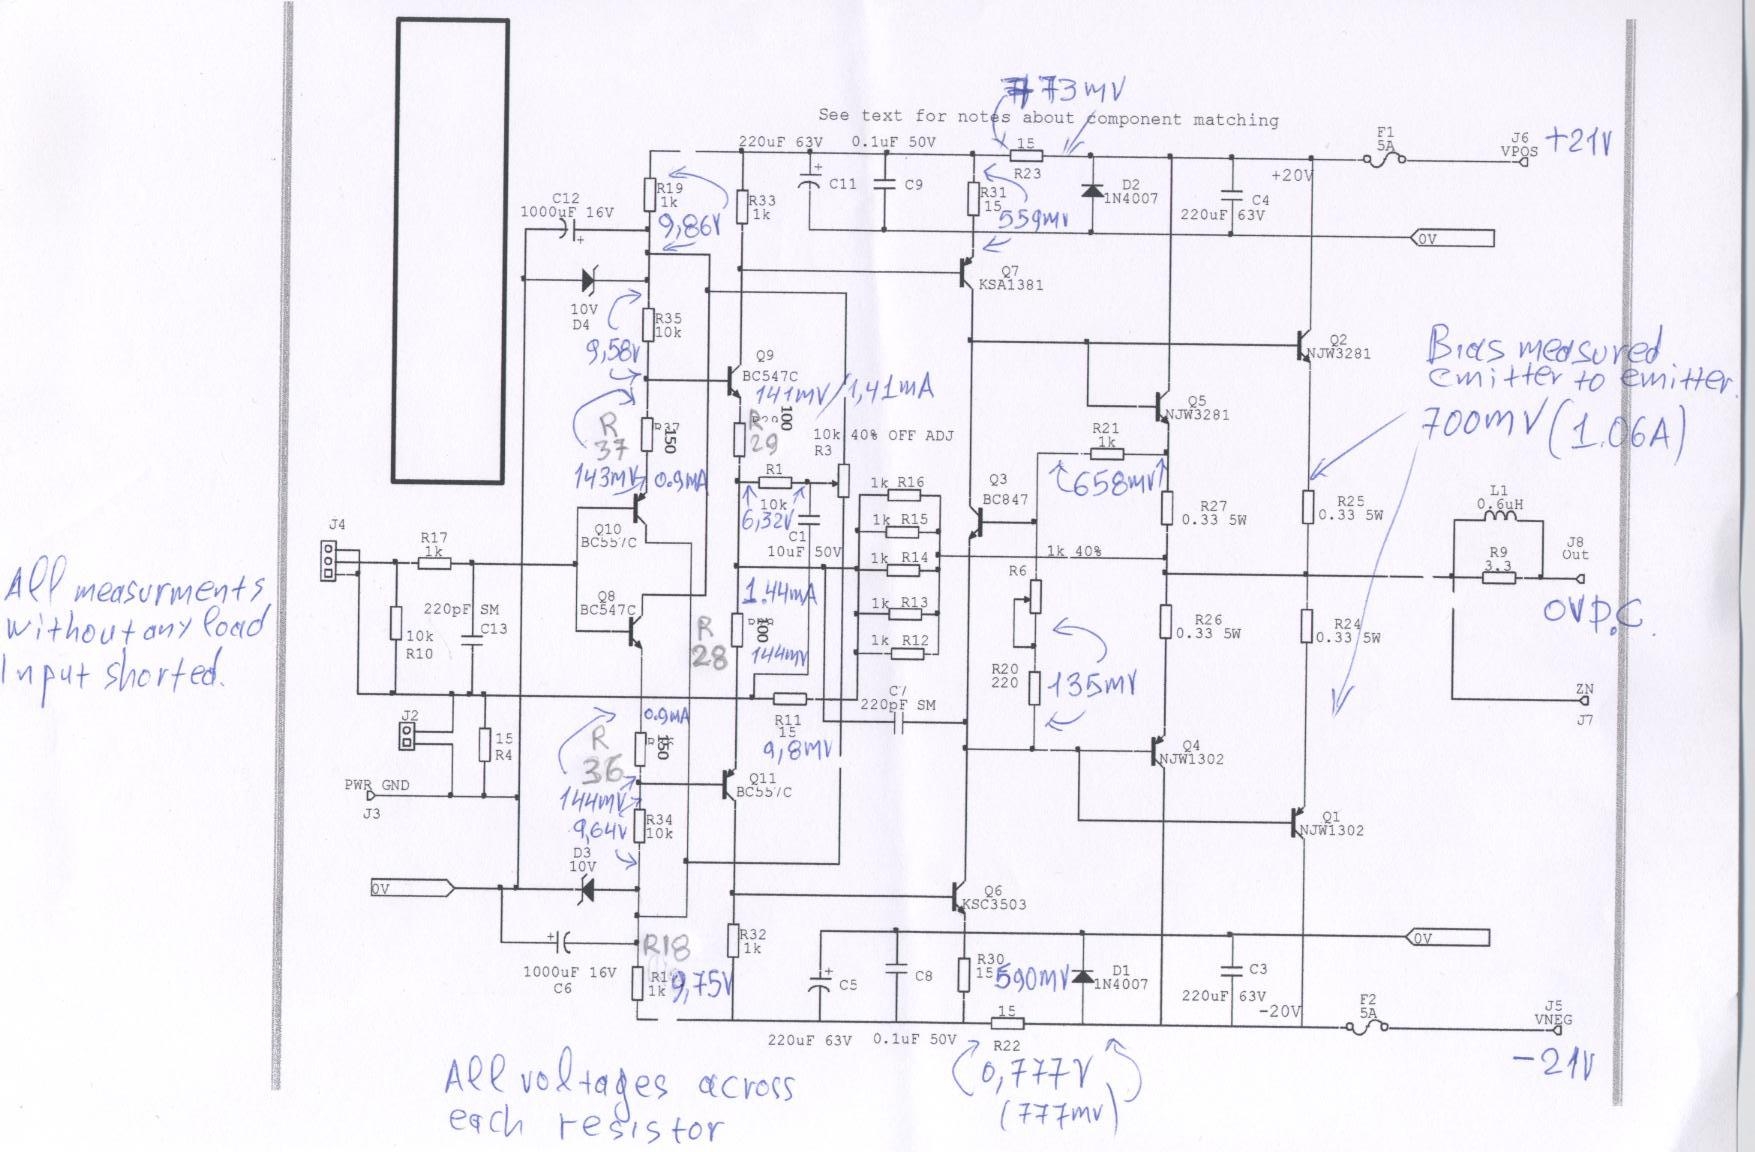 773mV
See text for notes about component matching
220uF 63V
0.1uF 50V
15
R23
F1
5A
J6
VPOS
+21V
+20V
C12
1000uF 16V
+
R19
1k
9,86V
R33
1k
+
C11
C9
R31
15
559mV
D2
1N4007
C4
220uF 63V
0V
10V
D4
R35
10k
9,58V
Q7
KSA1381
Q2
NJW3281
Bias measured
emitter to emitter.
700mV (1.06A)
Q9
BC547C
141mV/1,41mA
Q5
NJW3281
R
37
150
143mV
0.9mA
R
29
100
10k 40% OFF ADJ
R3
R1
10k
6,32V
C1
10uF 50V
1k R16
1k R15
1k R14
1k R13
1k R12
Q3
BC847
R21
1k
658mV
R27
0.33 5W
R25
0.33 5W
L1
0.6uH
R9
3.3
J8
Out
0V D.C.
J4
R17
1k
Q10
BC557C
1k 40%
R6
All measurments
without any load
Input shorted.
220pF SM
C13
10k
R10
Q8
BC547C
1.44mA
R
28
100
144mV
R26
0.33 5W
R24
0.33 5W
R20
220
135mV
C7
220pF SM
ZN
J7
J2
15
R4
0.9mA
R
36
150
144mV
R11
15
9,8mV
Q4
NJW1302
PWR GND
J3
Q11
BC557C
9,64V
R34
10k
Q1
NJW1302
D3
10V
0V
Q6
KSC3503
+
1000uF 16V
C6
R18
1k
9,75V
R32
1k
+
C5
C8
R30
15
590mV
D1
1N4007
C3
220uF 63V
-20V
0V
F2
5A
J5
VNEG
-21V
220uF 63V
0.1uF 50V
15
R22
0,777V
(777mV)
All voltages across
each resistor